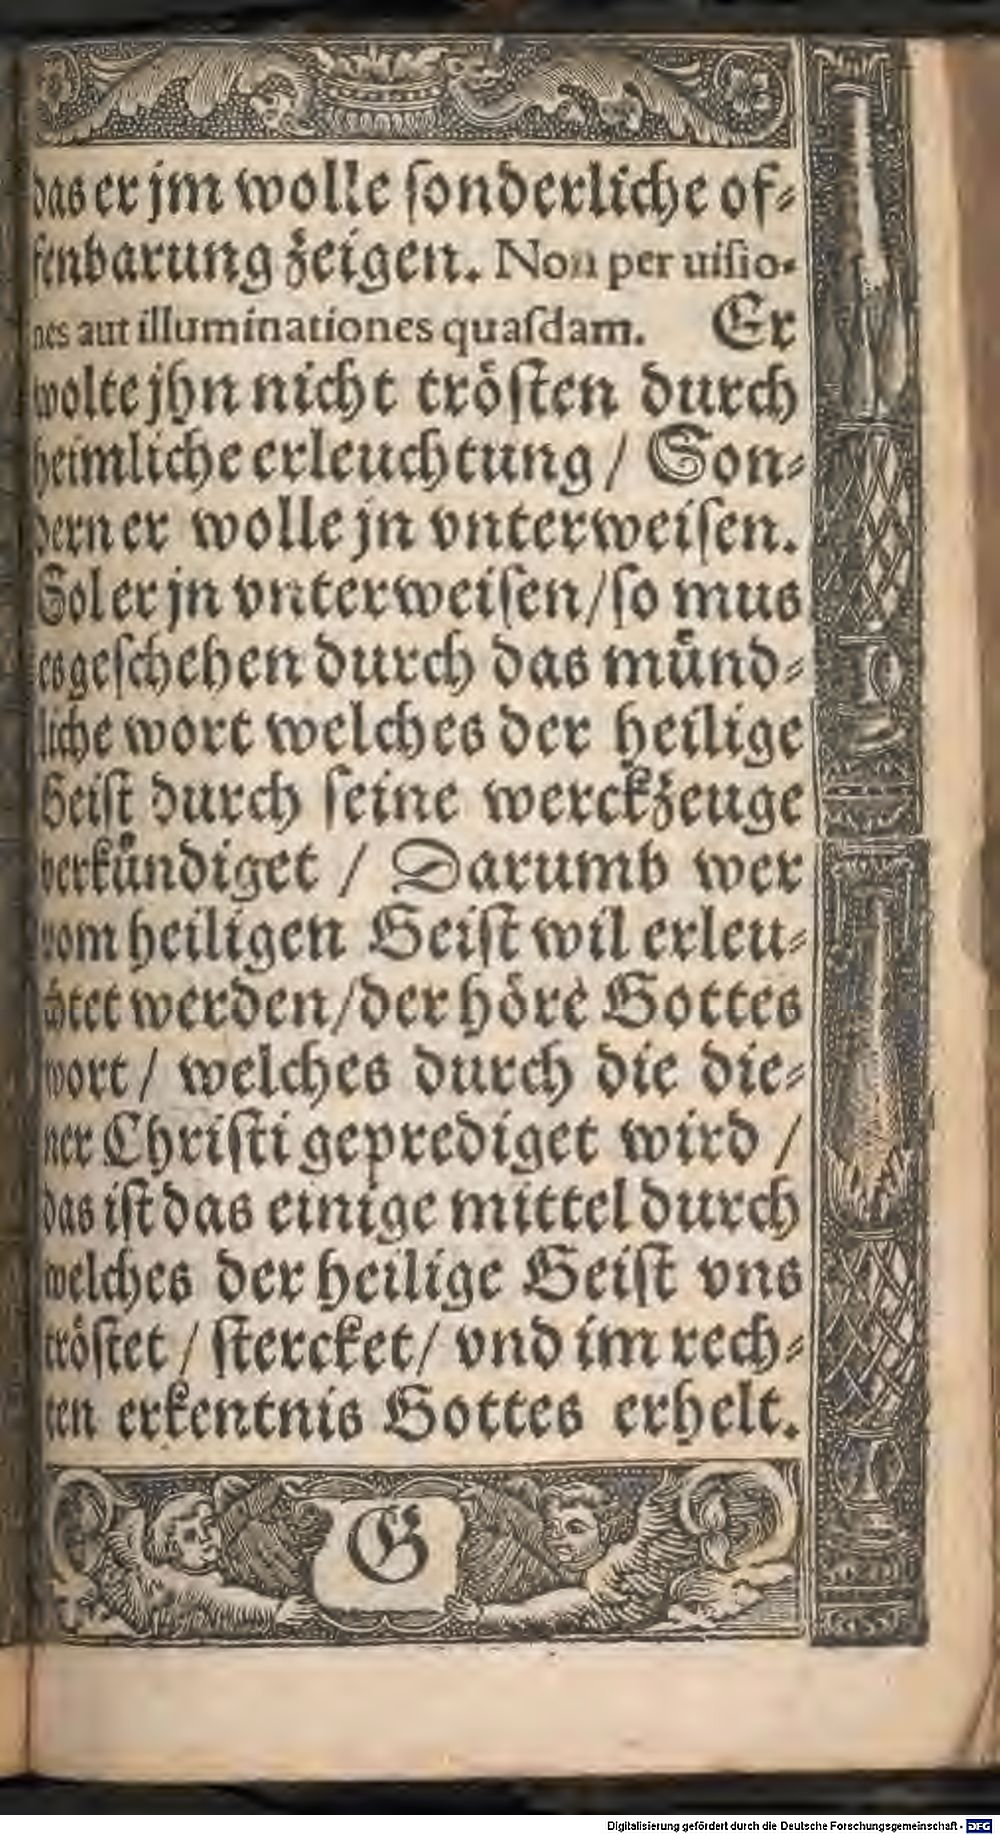 das er jm wolle ſonderliche of⸗
fenbarung zeigen. Non per uiſio⸗
nes aut illuminationes quaſdam. Er
wolte jhn nicht tröſten durch
heimliche erleuchtung / Son⸗
dern er wolle jn vnterweiſen.
Sol er jn vnterweiſen/ſo mus
es geſchehen durch das münd⸗
liche wort welches der heilige
Geiſt durch ſeine werckzeuge
verkündiget / Darumb wer
vom heiligen Geiſt wil erleu⸗
chtet werden/der höre Gottes
wort / welches durch die die⸗
ner Chriſti geprediget wird /
das iſt das einige mittel durch
welches der heilige Geiſt vns
tröſtet / ſtercket/ vnd im rech⸗
ten erkentnis Gottes erhelt.
G
Digitalisierung gefördert durch die Deutsche Forschungsgemeinschaft - DFG